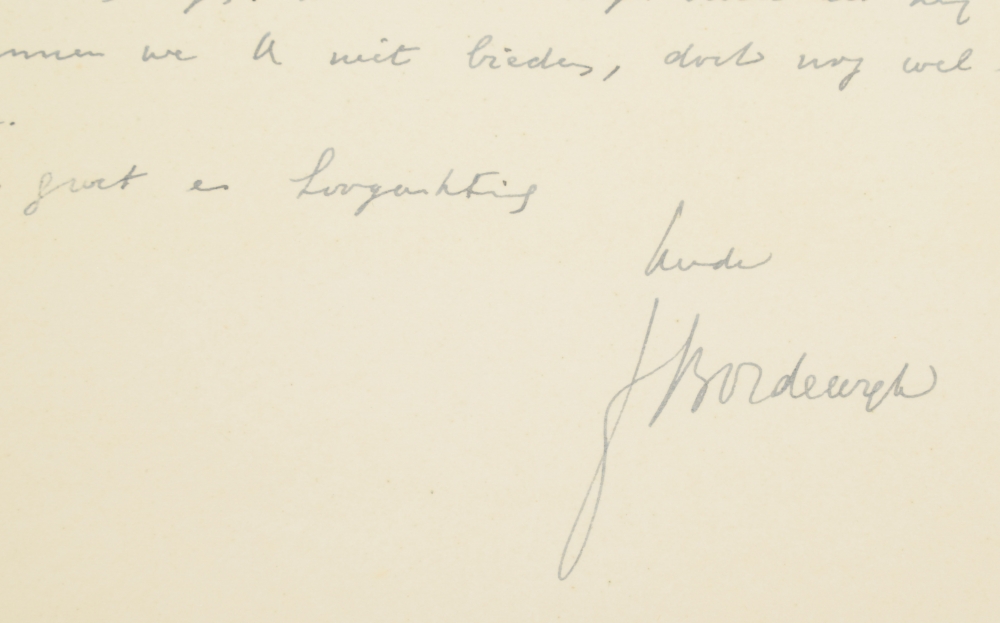 nnen we U niet bieden, doch nog wel
groet en hoogachting
FBordewijk